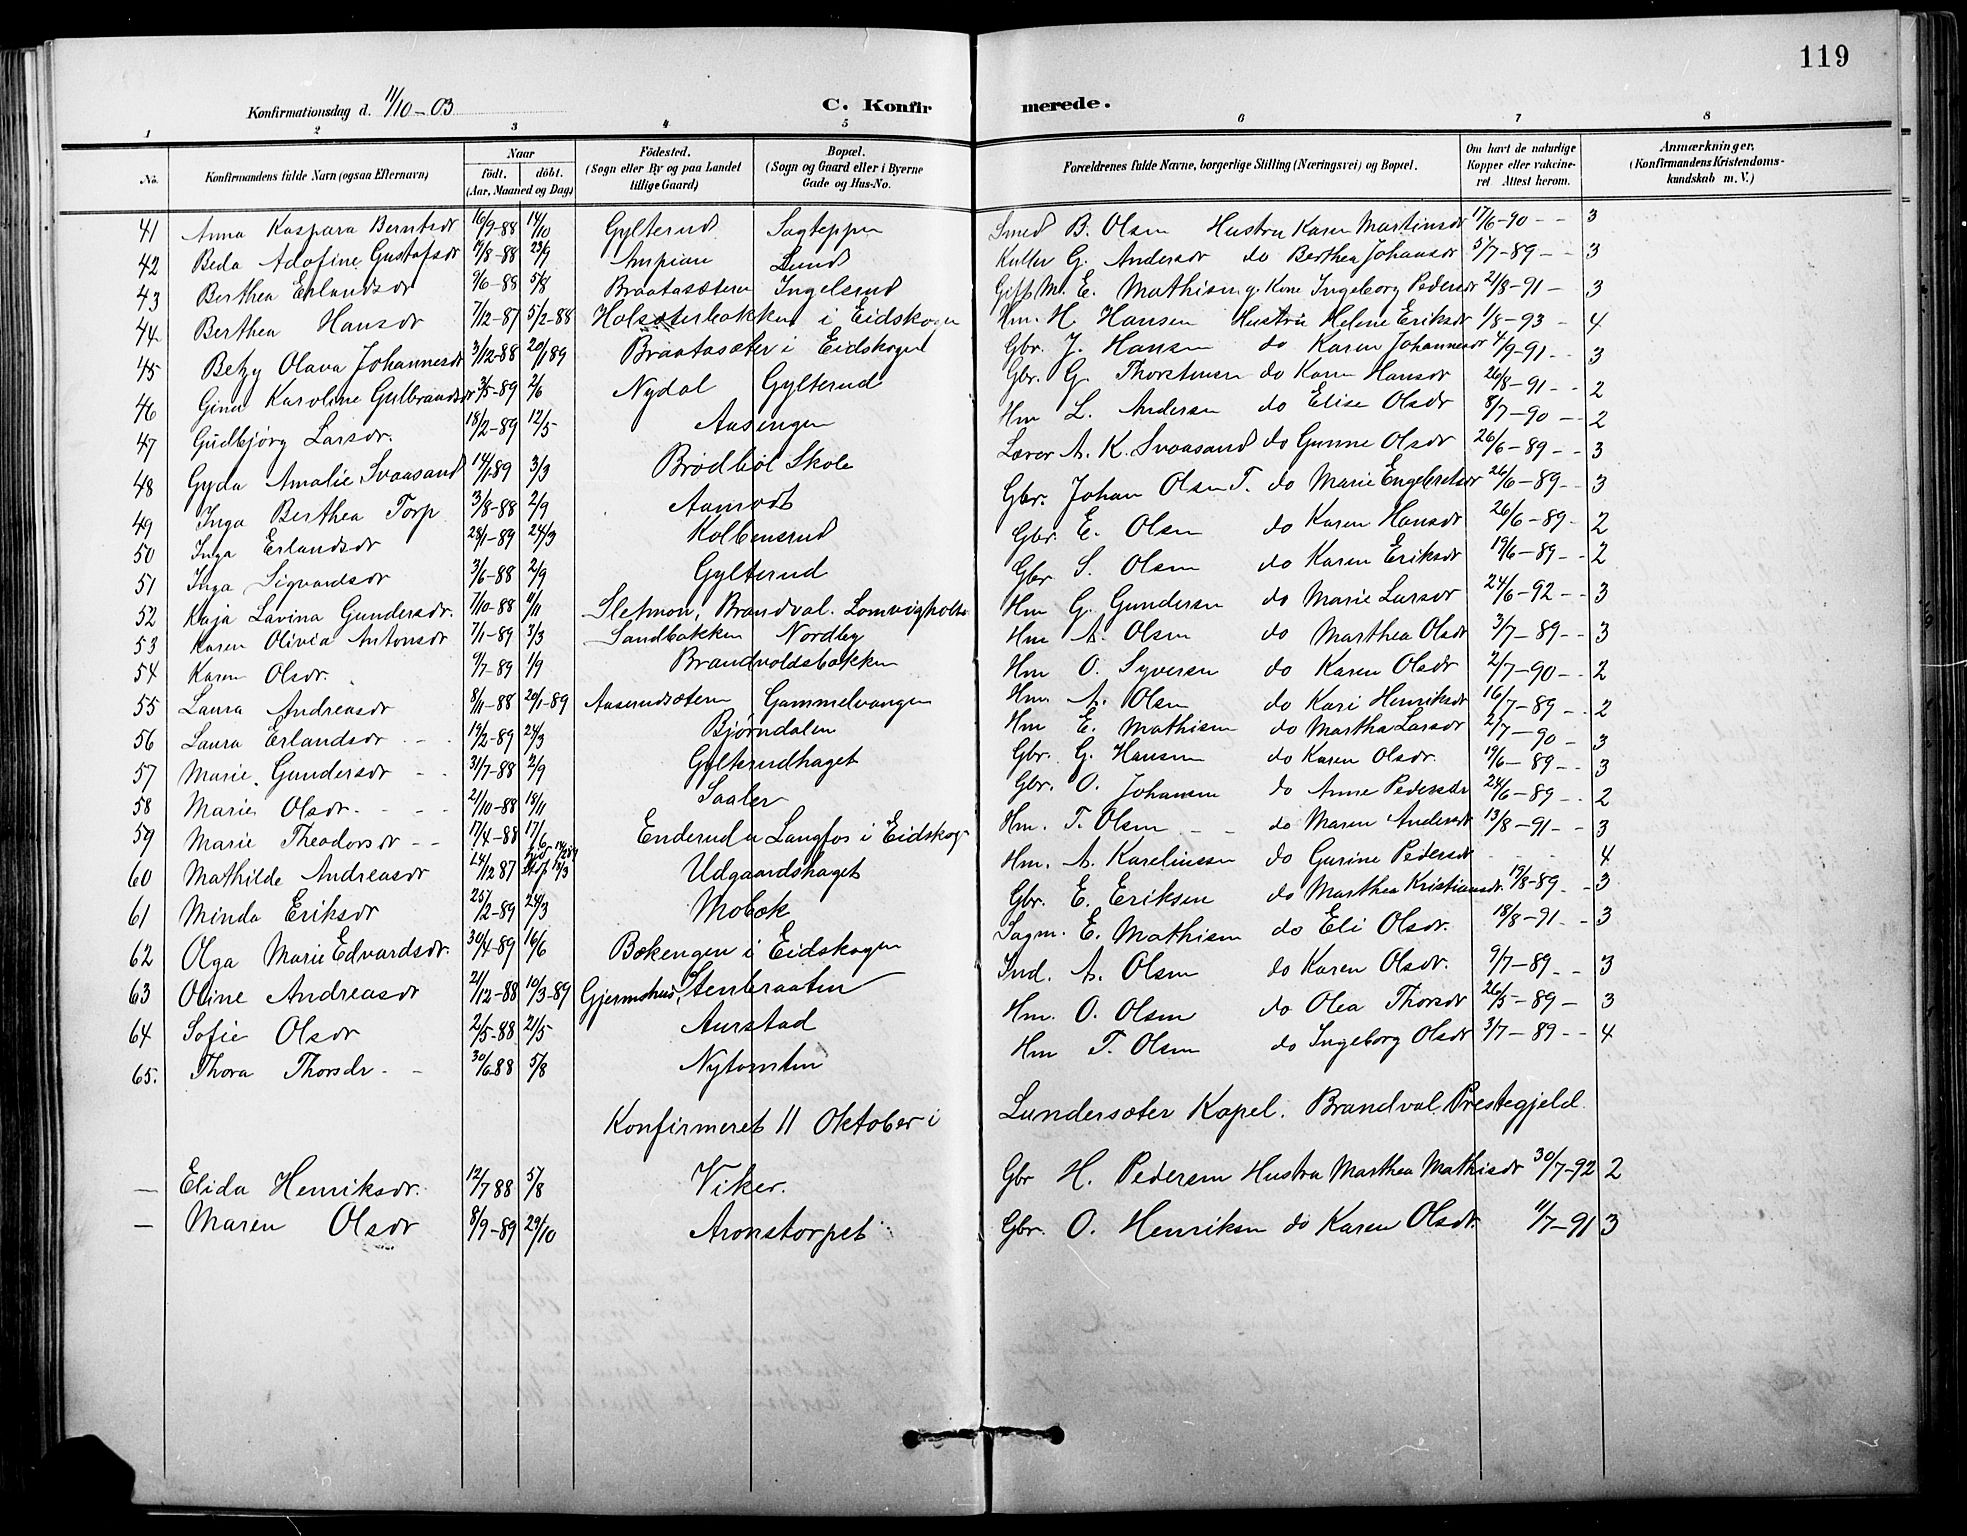 119
Konfirmationsdag d. 11/10-03 C. Konfirmerede.
1 2 3 4 5 6 7 8
No. Konfirmandens fulde Navn (ogsaa Efternavn) Naar födt. döbt. (Aar, Maaned og Dag) Födested. (Sogn eller By og paa Landet tillige Gaard) Bopæl. (Sogn og Gaard eller i Byerne Gade og Hus-No. Forældrenes fulde Navne, borgerlige Stilling (Næringsvei) og Bopæl. Om havt de naturlige Kopper eller vakcineret Attest herom. Anmærkninger. (Konfirmandens Kristendomskundskab m. V.)
41 Anna Kaspara Berntsdr 16/9-88 14/10 Gylterud Sagteppen Smed B. Olsen Hustru Karen Martinsdr 17/6-90 - - 3
42 Beda Adofine Gustafsdr 19/8-88 23/9 Lund Kuller G. Andersen do Berthea Johansdr 5/7-89 - - 3
43 Berthea Erlandsdr 9/6-88 5/8 Braatasæteren Ingelsrud E. Mathisen g. Kone Ingeborg Pedersdr 21/8-91 - 3
44 Berthea Hansdr 7/12-87 5/2-88 Holsæterbakken i Eidskogen Hm. H. Hansen Hustru Helene Eriksdr 1/8-93 - 4
45 Betzy Olava Johannesdr 3/12-88 20/1 89 Braatasæter i Eidskogen Gbr. J. Hansen do Karen Johannesdr 4/9-91 - - 3
46 Gina Karoline Gulbrandsdr 3/5-89 2/6 Nydal Gylterud Gbr. G. Thorstensen do Karen Hansdr 26/8-91 - - 2
47 Gudbjörg Larsdr. 18/2-89 12/5 Aasengen Hm L. Andersen do Elise Olsdr 8/7-90 - - 2
48 Gyda Amalie Svaasand 14/1 89 3/3 Brödböl Skole Lærer A. K. Svaasand do Gunne Olsdr 26/6-89 - - 3
49 Inga Berthea Torp 3/8-88 2/9 Aamodt Gbr. Johan Olsen T. do Marie Engebretsdr 26/6-89 - - 3
50 Inga Erlandsdr 28/1-89 24/3 Kolbensrud Gbr. E. Olsen do Karen Hansdr 26/6-89 - 2
51 Inga Sigvardsdr 3/6-88 2/9 Gylterud Gbr S. Olsen do Karen Eriksdr 19/6-89 - - 2
52 Kaja Lavina Gundersdr. 7/10-88 11/11 Sletmon, Brandval. Hm G. Gundersen do Marie Larsdr 24/6-92 - - 3
53 Karen Olivia Antonsdr 7/1-89 3/3 Sandbakken Nordby Hm A. Olsen do Marthea Olsdr 3/7-89 - - 3
54 Karen Olsdr. 9/7-89 1/9 Brandvoldsbakken Hm O. Syversen do Karen Olsdr 2/7-90 - - 2
55 Laura Andreasdr 8/11-88 20/1-89 Aaserudsæteren Gammelvangen Hm. A. Olsen do Kari Henriksdr 16/7-89 - - 2
56 Laura Erlandsdr - - 13/2-89 24/3 Bjørndalen Hm E. Mathisen do Martha Larsdr 2/7-90 - 3
57 Marie Gundersdr - - 31/7-88 2/9 Gylterudhaget Gbr. G. Hansen do Karen Olsdr. 19/6-89 - - 3
58 Marie Olsdr. - - - 21/10-88 18/11 Saaler Gbr. O. Johansen do Anne Pedersdr 24/6-89 - - 2
59 Marie Theodorsdr - - 17/4-88 17/6 Enderud u Langfos i Eidskog Hm. T. Olsen - - do Maren Andersdr 13/8-91 - - 3
60 Mathilde Andreasdr 24/12 87 Udgaardshaget Hm. A. Karelinssen do Gurine Pedersdr - - 4
61 Minda Eriksdr 25/2-89 24/3 Mobæk Gbr. E. Eriksen do Marthea Kristiansdr. 19/8-89 - - 3
62 Olga Marie Edvardsdr. 30/4-89 16/6 Bækengen i Eidskogen Sagm. E. Mathisen do Eli Olsdr. 18/8-91 - - 3
63 Oline Andreasdr 21/12-88 10/3-89 Gjermshus, Stenbraaten Ind. A. Olsen do Karen Olsdr. 9/7-89 - - 3
64 Sofie Olsdr 2/5-88 21/5 Aurstad Hm. O. Olsen do Olea Thorsdr 26/5-89 - 3
65. Thora Thorsdr - - 30/6 88 5/8 Nytomten Hm T. Olsen do Ingeborg Olsdr 3/7-89 - - 4
Konfirmeret 11 Oktober i Lundersæter Kapel. Brandval Prestegjeld.
— Elida Henriksdr. 12/7 88 5/8 Viker. Gbr H. Pedersen Hustru Marthea Mathisdr 30/7-92 2
— Maren Olsdr 8/9-89 29/10 Aronstorpet Gbr. O. Henriksen do Karen Olsdr. 11/7-91 3